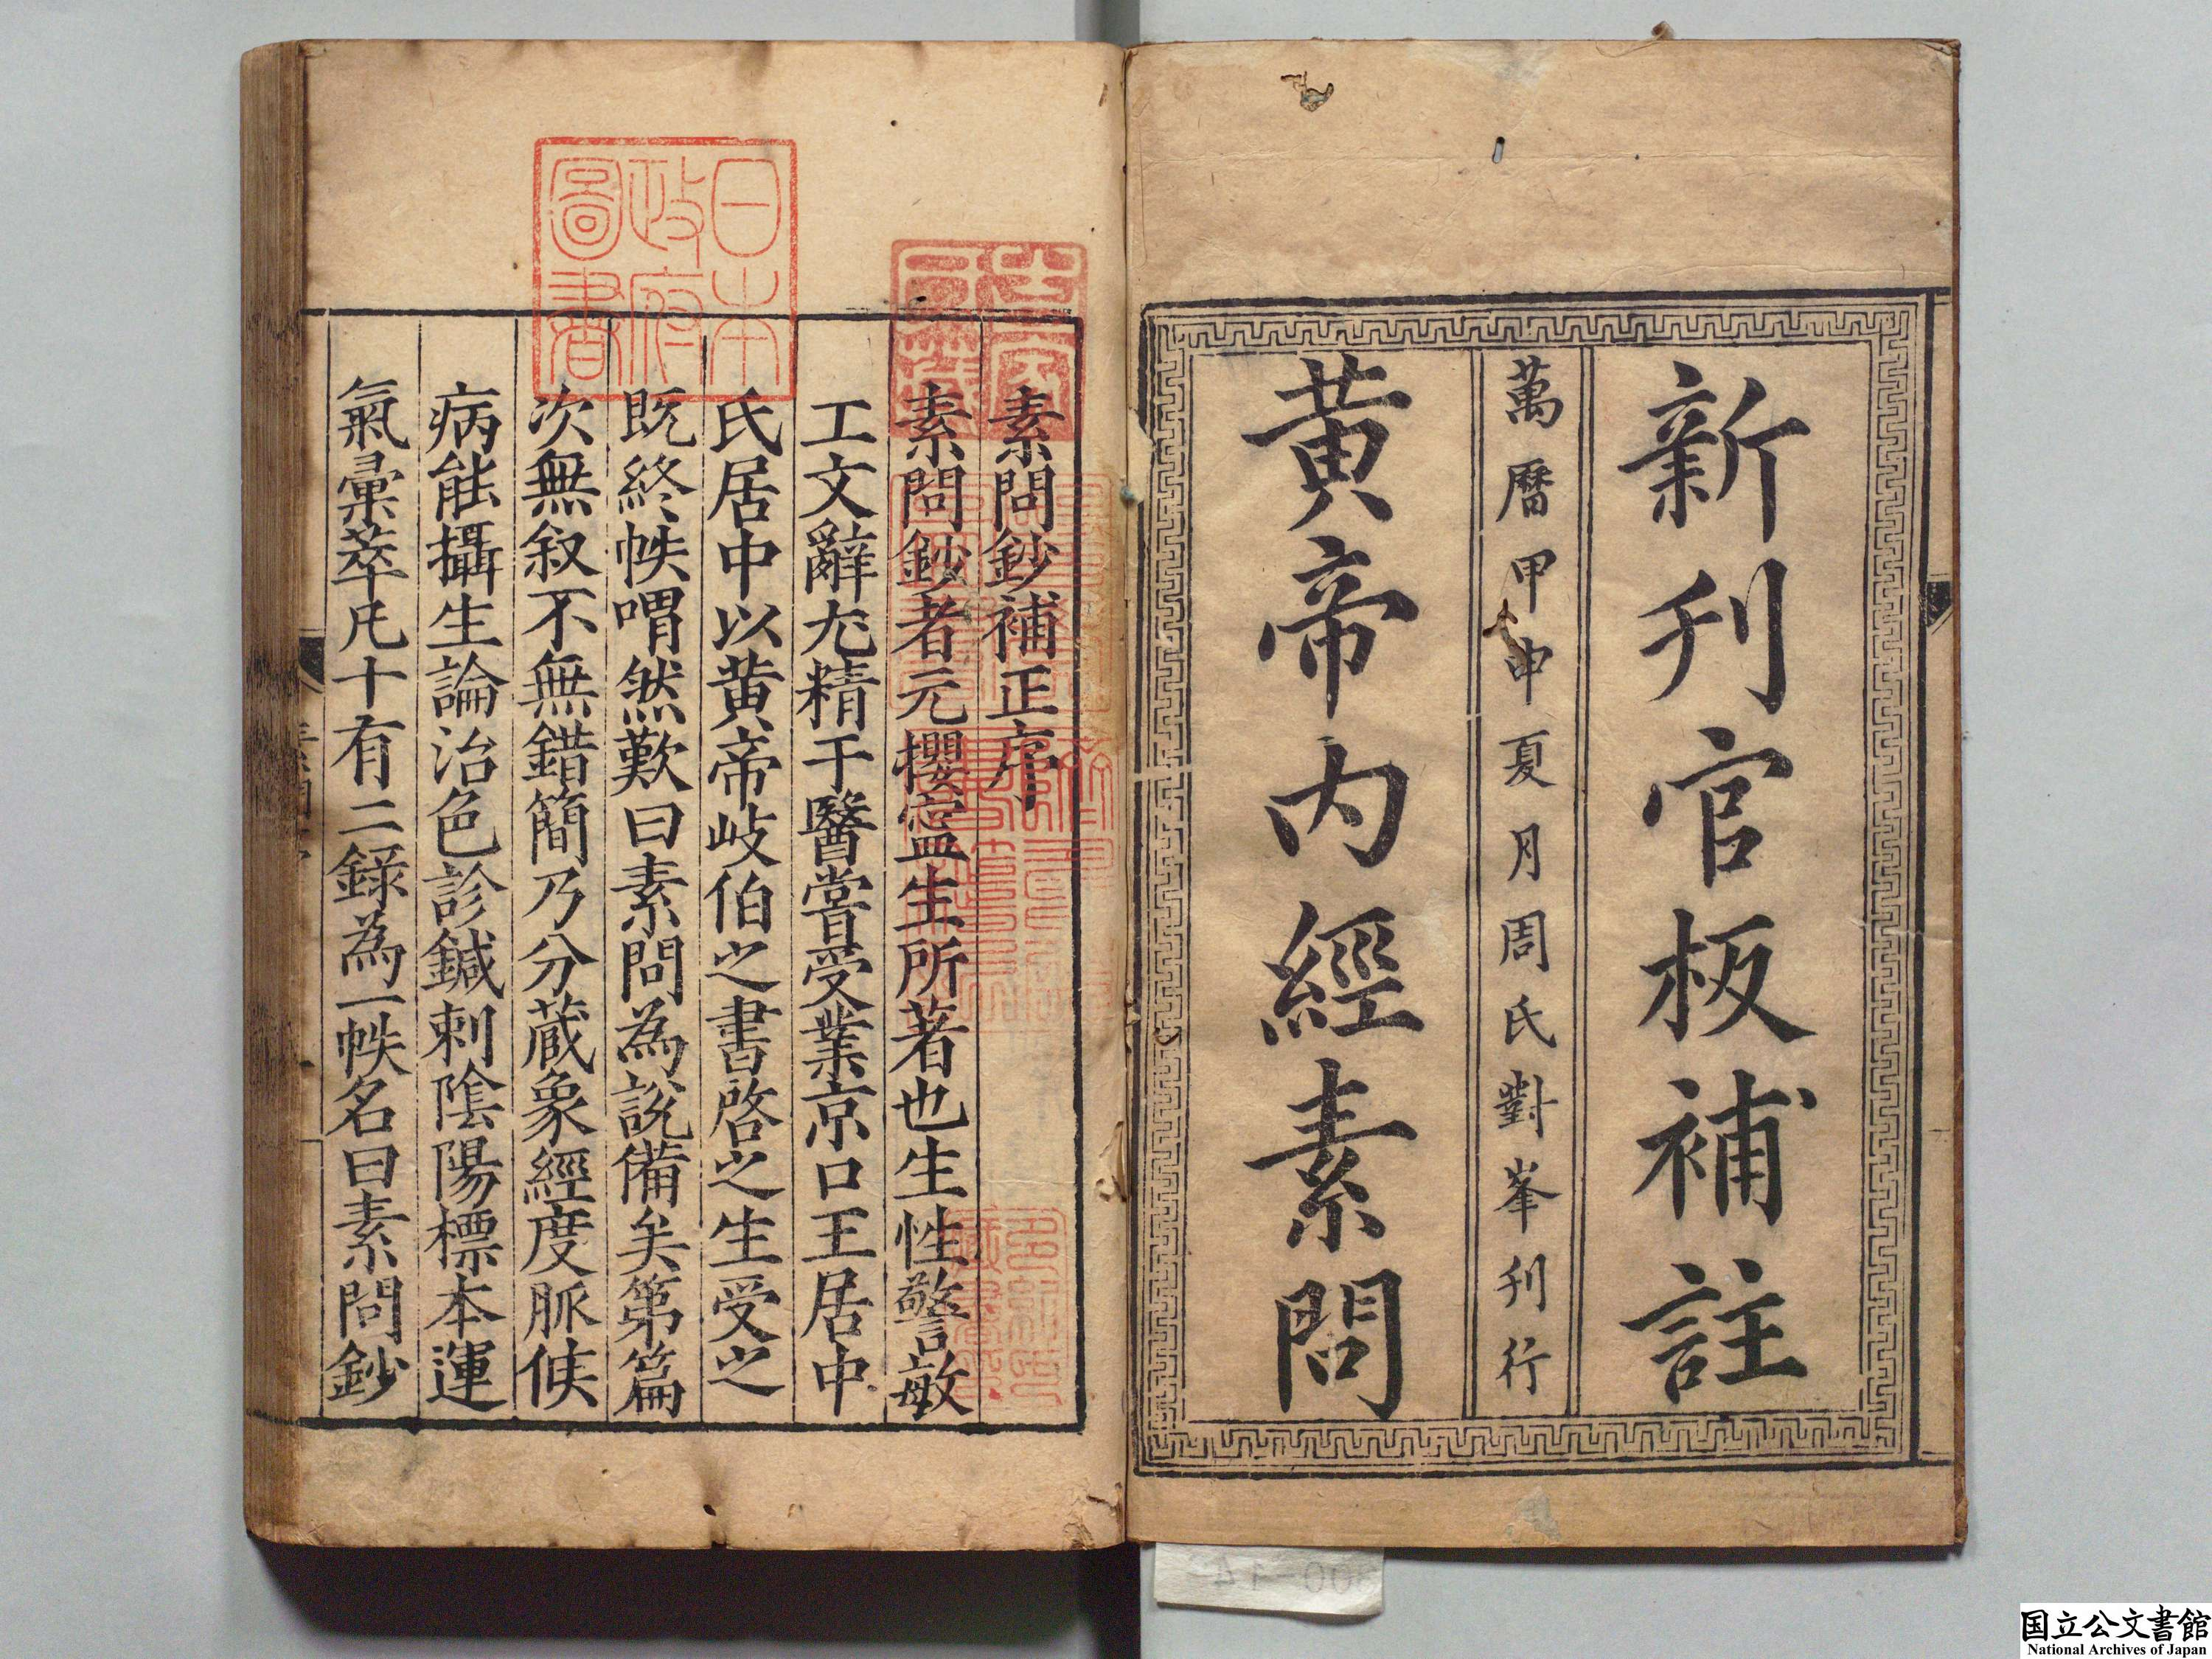 新刋官板補註
萬曆甲申夏月周氏對峯刋行
黃帝內經素問
素問鈔補正序
素問鈔者元攖寍生所著也生性警敏
工文辭尤精于醫嘗受業京口王居中
氏居中以黃帝岐伯之書啓之生受之
既終帙喟然歎曰素問為說備矣第篇
次無叙不無錯簡乃分蔵象經度脈候
病能攝生論治色診鍼刺陰陽標本運
氣彙萃凡十有二錄為一帙名曰素問鈔
日本
政府
圖書
国立公文書館
National Archives of Japan